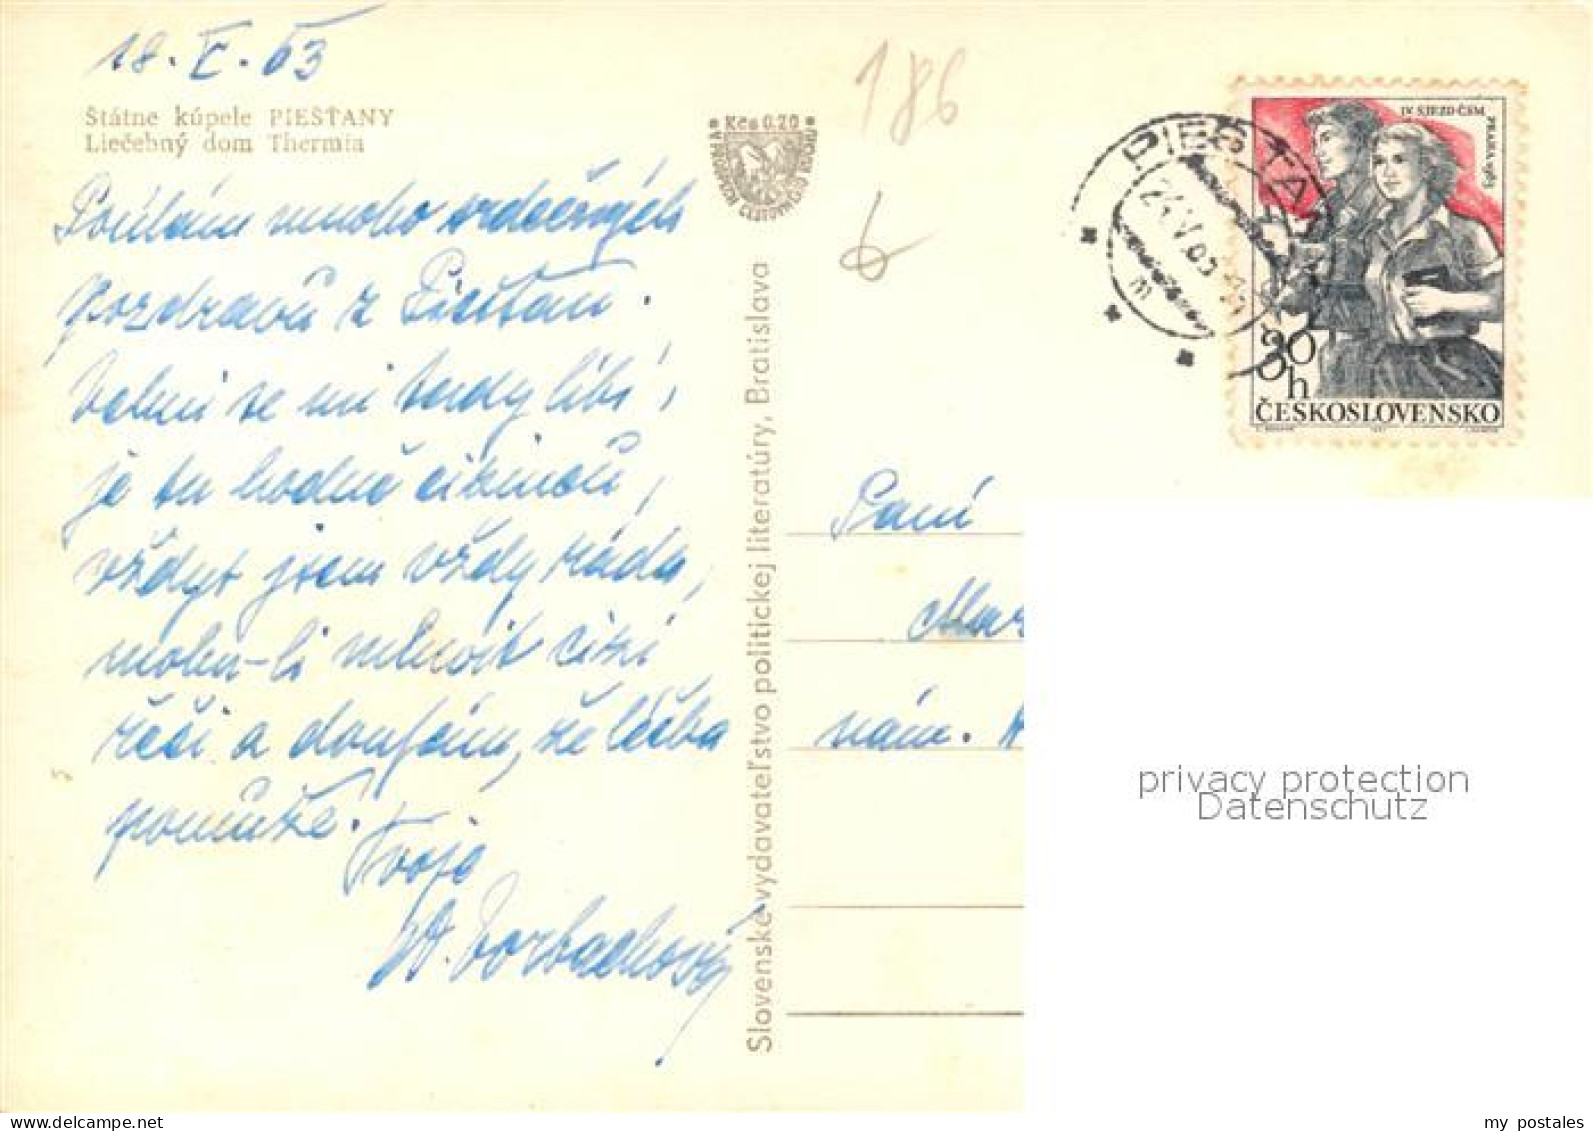 18. V. 63
Štátne kúpele PIEŠŤANY
Liečebný dom Thermia
Posílám mnoho srdečných
pozdravů z Piešťan.
Velmi se mi tady líbí,
je tu hodně cizinců,
vždyť jsem vždy ráda,
mohu-li mluvit cizí
řečí a doufám, že léčba
pomůže.
Tvoje
Kčs 0.20
Slovenské vydavateľstvo politickej literatúry, Bratislava
186
6
PIEŠŤANY
IV SJEZD ČSM
PRAHA 1963
30
h
ČESKOSLOVENSKO
Paní
Mar
nám.
privacy protection
Datenschutz
my postales